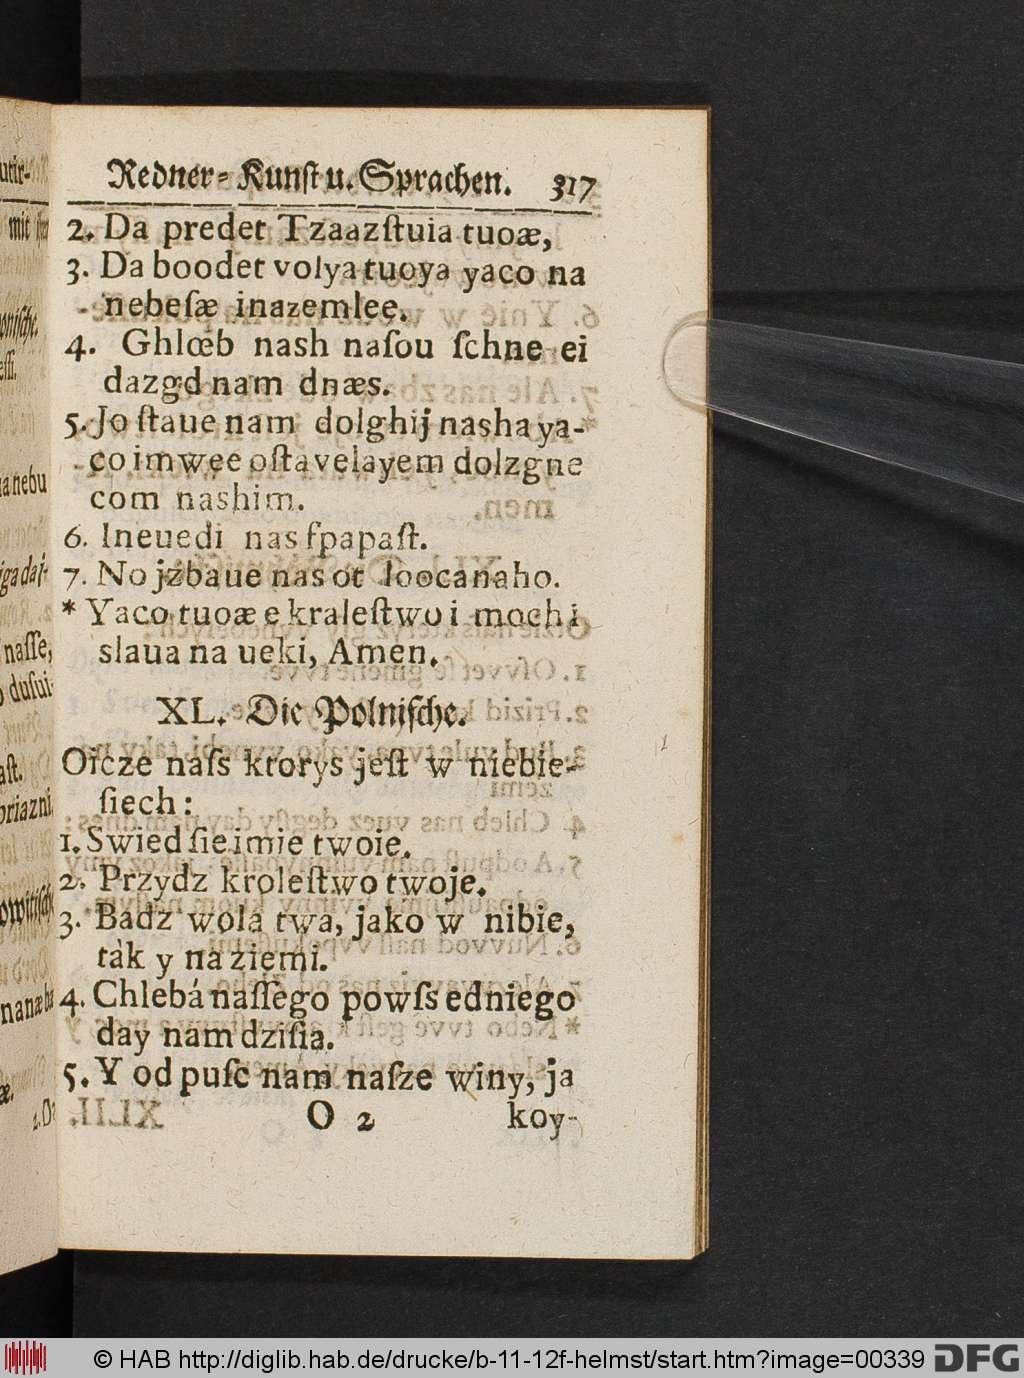 Redner-Kunst u. Sprachen. 317
2. Da predet Tzaazſtuia tuoæ,
3. Da boodet volya tuoya yaco na
nebeſæ inazemlee.
4. Ghlœb nash naſou ſchne ei
dazgd nam dnæs.
5. Jo ſtaue nam dolghij nasha ya-
co imwee oſtavelayem dolzgne
com nashim.
6. Ineuedi nas ſpapaſt.
7. No jzbaue nas ot loocanaho.
* Yaco tuoæ e kraleſtwo i moch i
slaua na ueki, Amen.
XL. Die Polniſche.
Oicze naſs ktorys jeſt w niebie-
ſiech:
1. Swied ſie imie twoie.
2. Przydz kroleſtwo twoje.
3. Badz wola twa, jako w nibie,
tàk y na ziemi.
4. Chlebá naſſego powſs edniego
day nam dziſia.
5. Y od puſc nam naſze winy, ja
O 2 koy-
mit
nebu
naſſe,
duſui-
aſt.
priazni
© HAB http://diglib.hab.de/drucke/b-11-12f-helmst/start.htm?image=00339 DFG